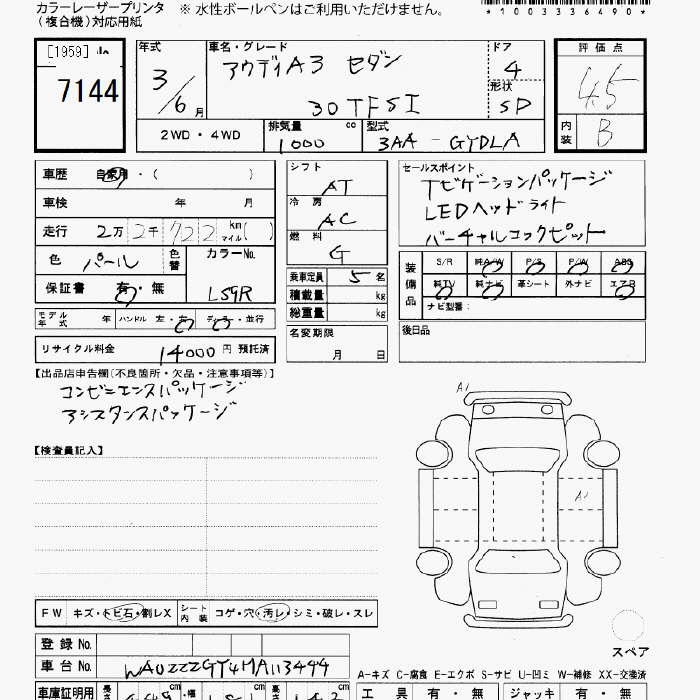 カラーレーザープリンタ
(複合機)対応用紙
※ 水性ボールペンはご利用いただけません。
*1003336490*
[1959]
7144
年式
3/6 月
車名・グレード
アウディA3 セダン
30TFSI
ドア
4
形状
SD
評価点
4.5
内装
B
2WD・4WD
排気量
1000 cc
型式
3AA-GYDLA
車歴 自家用・( )
車検 年 月
走行 2万2千722 km マイル( )
色 パール
色替
カラーNo.
LS9R
保証書 有・無
モデル年式 年
ハンドル 左・右
ディーラー・並行
リサイクル料金 14000 円 預託済
シフト
AT
冷房
AC
燃料
G
乗車定員 5 名
積載量 kg
総重量 kg
名変期限
月 日
セールスポイント
ナビゲーションパッケージ
LEDヘッドライト
バーチャルコックピット
装備品
S/R 純A/W P/S P/W ABS
純TV 純ナビ 革シート 外ナビ エアB
ナビ型番:
後日品
【出品店申告欄(不良箇所・欠品・注意事項等)】
コンビニエンスパッケージ
アシスタンスパッケージ
【検査員記入】
A1
A1
FW キズ・トビ石・割レX
シート内装 コゲ・穴・汚レ・シミ・破レ・スレ
スペア
登録No.
車台No. WAUZZZGY4MA113494
A-キズ C-腐食 E-エクボ S-サビ U-凹ミ W-補修 XX-交換済
車庫証明用
長さ cm
幅 cm
高さ cm
工具 有・無
ジャッキ 有・無